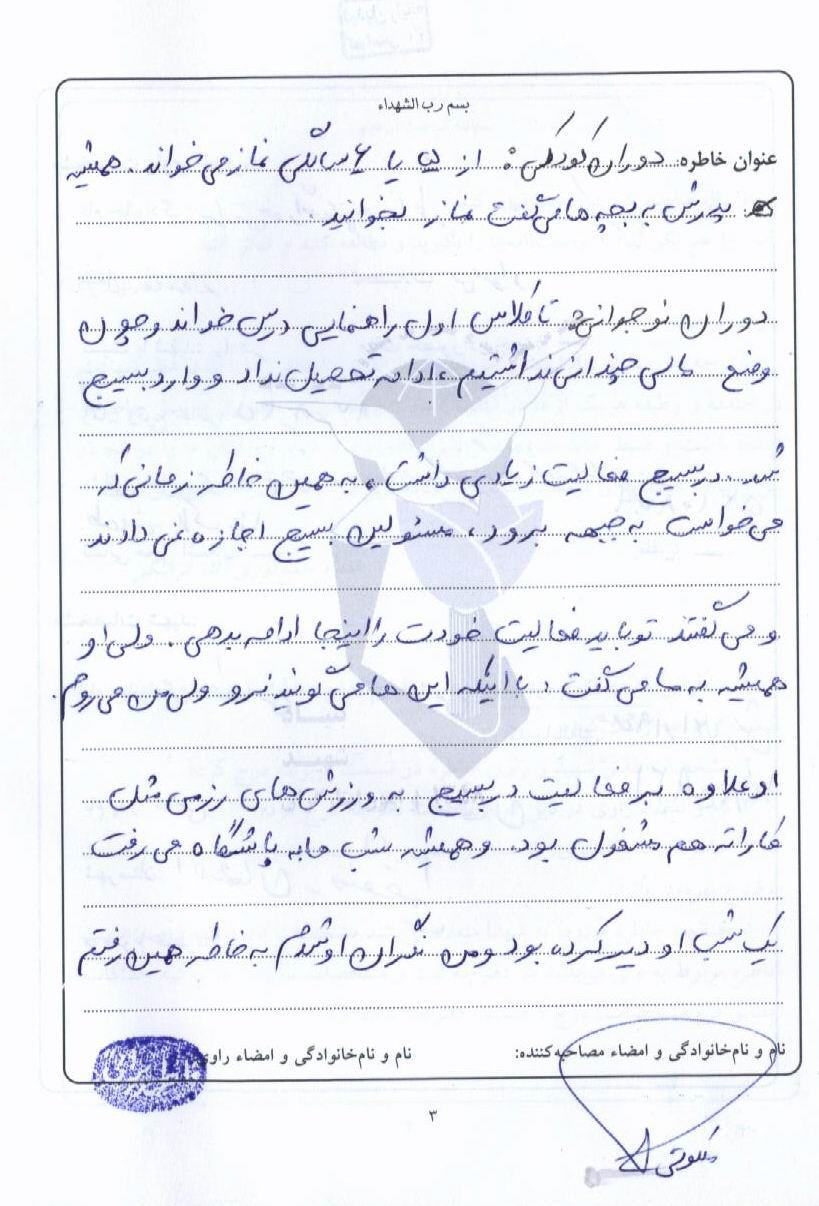 بسم رب الشهداء
عنوان خاطره: دوران کودکی: از ۵ یا ۶ سالگی نماز می خواند. همیشه
پدرش به بچه ها می گفت نماز بخوانید.
دوران نوجوانی: تا کلاس اول راهنمایی درس خواند و چون
وضع مالی چندانی نداشتیم، ادامه تحصیل نداد و وارد بسیج
شد. در بسیج فعالیت زیادی داشت، به همین خاطر زمانی که
می خواست به جبهه برود، مسئولین بسیج اجازه نمی دادند
و می گفتند تو باید فعالیت خودت را اینجا ادامه بدهی. ولی او
همیشه به ما می گفت: با اینکه این ها می گویند نرو ولی من می روم.
او علاوه بر فعالیت در بسیج به ورزش های رزمی مثل
کاراته هم مشغول بود. و همیشه شب ها به باشگاه می رفت
یک شب او دیر کرده بود و من نگران او شدم به خاطر همین رفتم
نام و نام‌خانوادگی و امضاء مصاحبه‌کننده: نام و نام‌خانوادگی و امضاء راوی:
۳